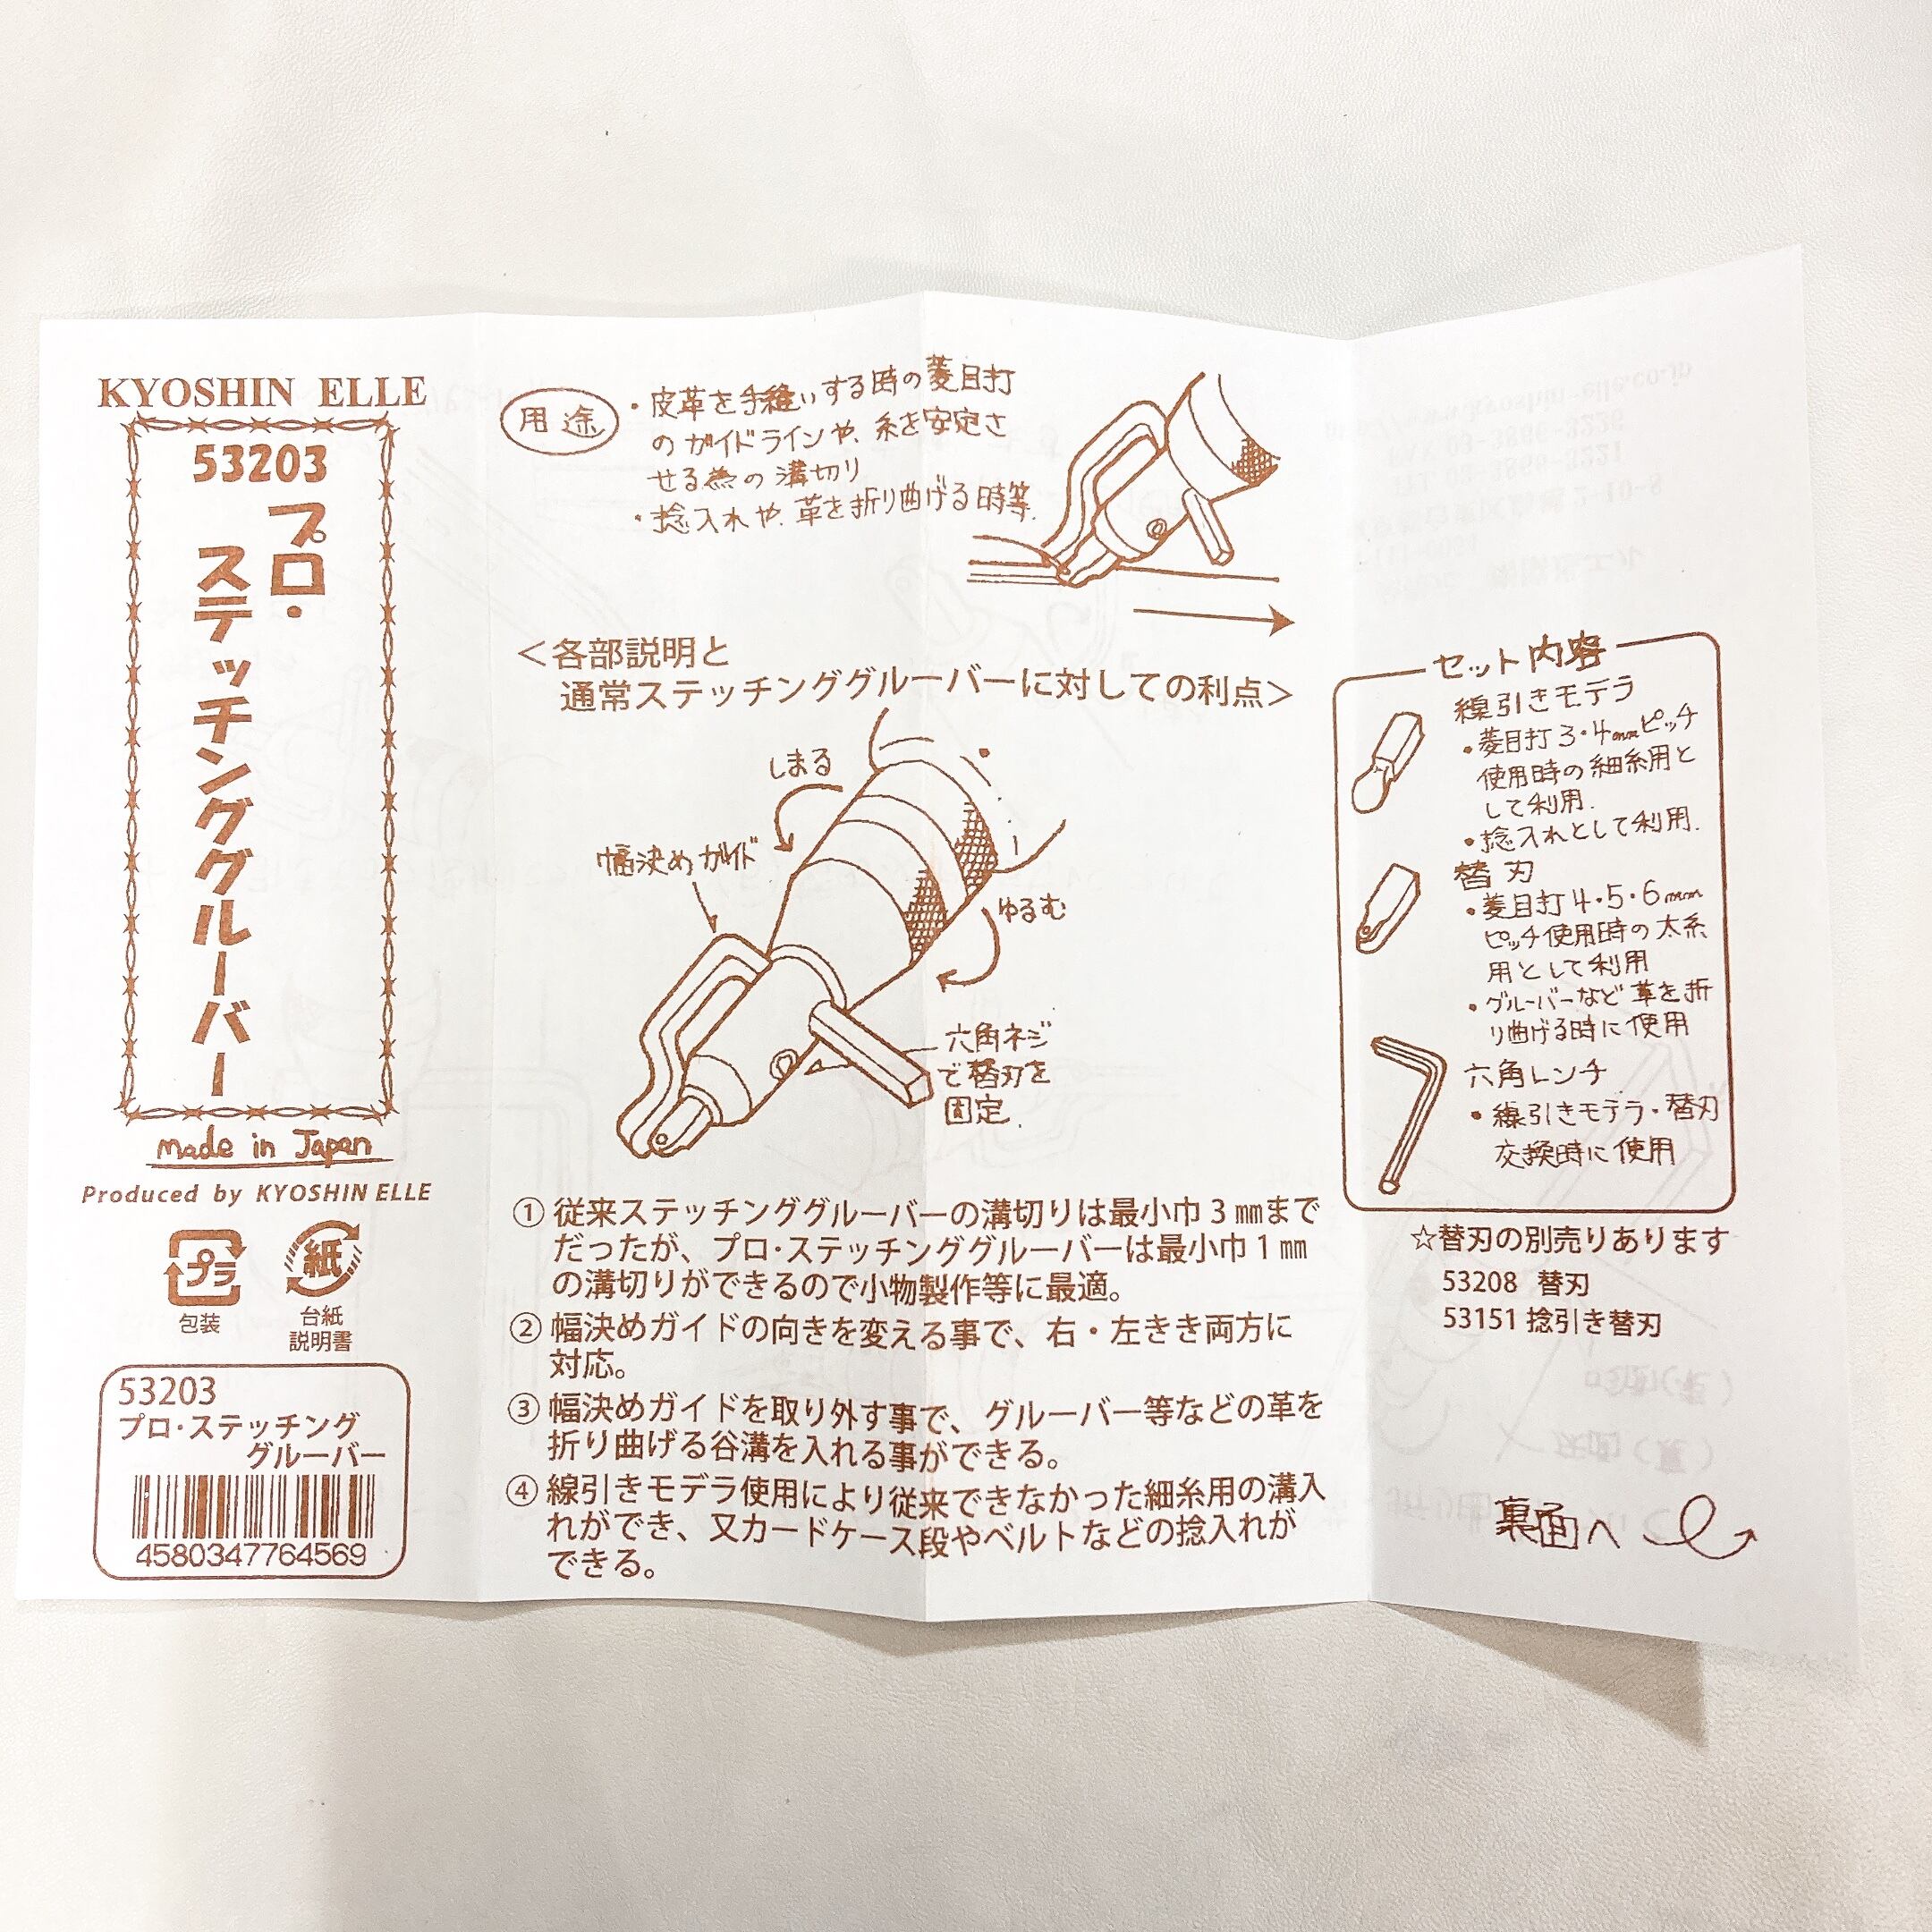 KYOSHIN ELLE
53203
プロ・
ステッチンググルーバー
made in Japan
Produced by KYOSHIN ELLE
プラ
包装
紙
台紙
説明書
53203
プロ・ステッチング
グルーバー
4580347764569
用途
・皮革を手縫いする時の菱目打
のガイドラインや、糸を安定さ
せる為の溝切り
・捻入れや、革を折り曲げる時等.
＜各部説明と
通常ステッチンググルーバーに対しての利点＞
しまる
幅決めガイド
ゆるむ
六角ネジ
で替刃を
固定.
① 従来ステッチンググルーバーの溝切りは最小巾3㎜まで
だったが、プロ・ステッチンググルーバーは最小巾1㎜
の溝切りができるので小物製作等に最適。
② 幅決めガイドの向きを変える事で、右・左きき両方に
対応。
③ 幅決めガイドを取り外す事で、グルーバー等などの革を
折り曲げる谷溝を入れる事ができる。
④ 線引きモデラ使用により従来できなかった細糸用の溝入
れができ、又カードケース段やベルトなどの捻入れが
できる。
セット内容
線引きモデラ
・菱目打3・4mmピッチ
使用時の細糸用と
して利用.
・捻入れとして利用.
替刃
・菱目打4・5・6mm
ピッチ使用時の太糸
用として利用
・グルーバーなど革を折
り曲げる時に使用
六角レンチ
・線引きモデラ・替刃
交換時に使用
☆替刃の別売りあります
53208 替刃
53151 捻引き替刃
裏面へ